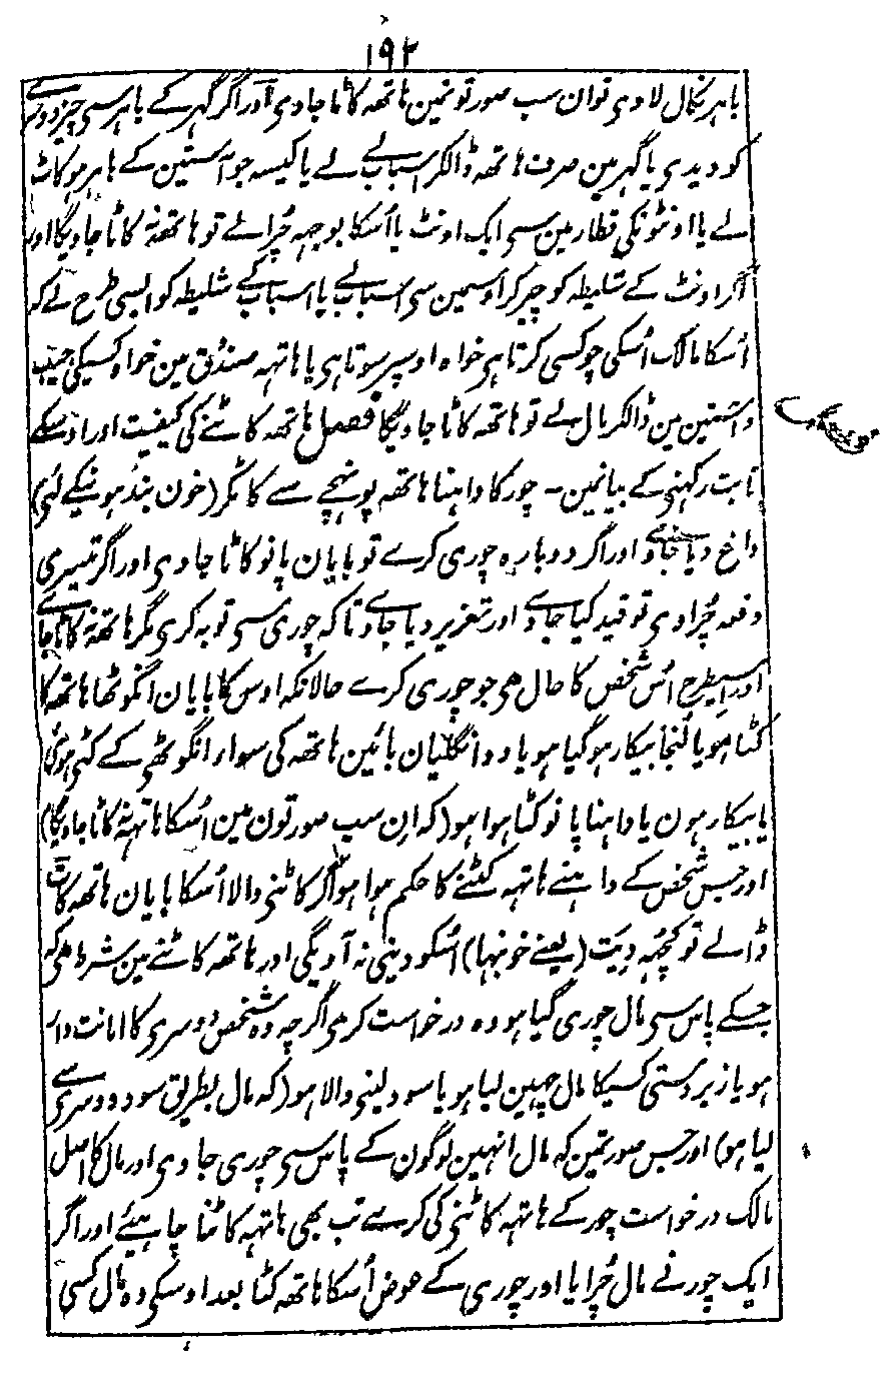 ۱۹۲
باہر نکال لاوی توان سب صورتونمین ہاتھہ کاٹا جاوی اوراگر گہر کے باہرسی چیز دوسرے
کو دیدی یا گہر مین صرف ہاتھہ ڈالکر اسباب لے لے یا کیسہ جو آستین کے باہر ہو کاٹ
لے یا اونٹونکی قطار مین سی ایک اونٹ یا اُسکا بوجہہ چُرالے تو ہاتھہ نہ کاٹا جاویگا اور
اگر اونٹ کے شلیطہ کو چیر کر اوسمین سی اسباب لے یا اسباب کے شلیطہ کو ایسی طرح لے کہ
اُسکا مالک اُسکی چوکسی کرتا ہی خواہ اوسپر سوتا ہی یا ہاتہہ صندُوق مین خواہ کسیکی جیب
واستین مین ڈالکر مال لے تو ہاتھہ کاٹا جاویگا فصل ہاتھہ کاٹنے کی کیفیت اور اوسکے
ثابت رکہنی کے بیانمین - چور کا داہنا ہاتھہ پونہچے سے کاٹکر (خون بند ہونیکے لئی)
داغ دیا جاوے اور اگر دوبارہ چوری کرے تو بایان پانو کاٹا جاوی اور اگر تیسری
دفعہ چُراوی تو قید کیا جاوے اور تعزیر دیا جاوے تاکہ چوری سی توبہ کری مگر ہاتھہ نہ کاٹا جاے
اور اسیطرح اُس شخص کا حال ہی جو چوری کرے حالانکہ اوس کا بایان انگوٹھا ہاتھہ کا
کٹا ہو یا لُنجا بیکار ہوگیا ہو یا دو انگلیان بائین ہاتھہ کی سوار انگوٹھی کے کٹی ہوئی
یا بیکار ہون یا داہنا پانو کٹا ہوا ہو (کہ ان سب صورتون مین اُسکا ہاتہہ نہ کاٹا جاویگا)
اور جس شخص کے داہنے ہاتہہ کٹنے کا حکم ہوا ہو اگر کاٹنی والا اُسکا بایان ہاتھہ کاٹ
ڈالے تو کچہہ دِیَت (یعنے خونبہا) اُسکو دینی نہ آویگی اور ہاتھہ کاٹنے مین شرط ہی کہ
جسکے پاس سی مال چوری گیا ہو وہ درخواست کری اگرچہ وہ شخص دوسری کا امانت دار
ہو یا زبردستی کسیکا مال چہین لیا ہو یا سود لینی والا ہو (کہ مال بطریق سود دوسری سے
لیا ہو) اور جس صورتمین کہ مال انہین لوگون کے پاس سی چوری جاوی اور مال کا اصل
مالک درخواست چور کے ہاتہہ کاٹنی کی کرے تب بھی ہاتہہ کاٹنا چاہیئے اور اگر
ایک چور نے مال چُرایا اور چوری کے عوض اُسکا ہاتھہ کٹا بعد اوسکی وہ مال کسی